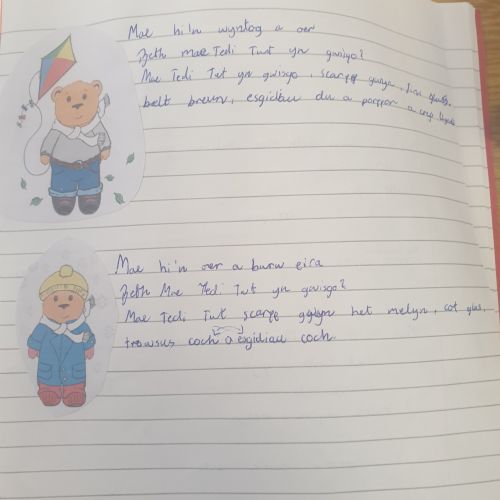 Mae hi'n wyntog a oer
Beth mae Tedi Twt yn gwisgo?
Mae Tedi Twt yn gwisgo, scarff gwyn,
belt brown, esgidiau du a poppor a crys llwyd
Mae hi'n oer a bwrw eira
Beth Mae Tedi Twt yn gwisgo?
Mae Tedi Twt scarff gwyn het melyn, cot glas,
trowsus coch a esgidiau coch.